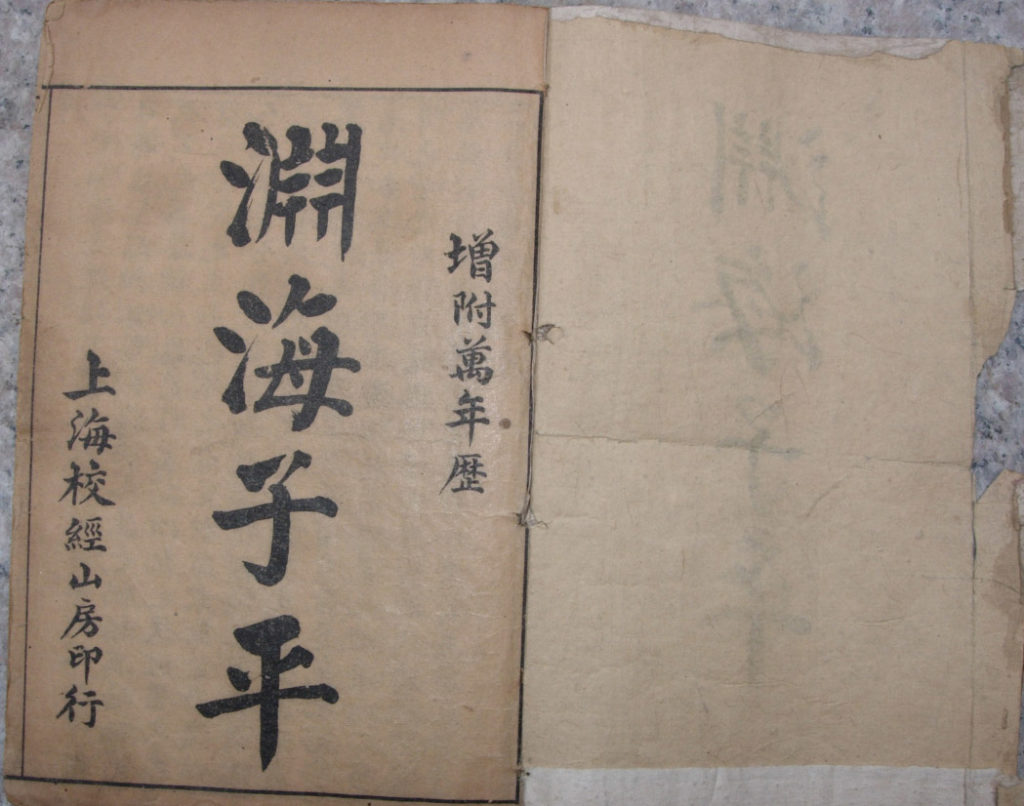 增附萬年歴
淵海子平
上海校經山房印行